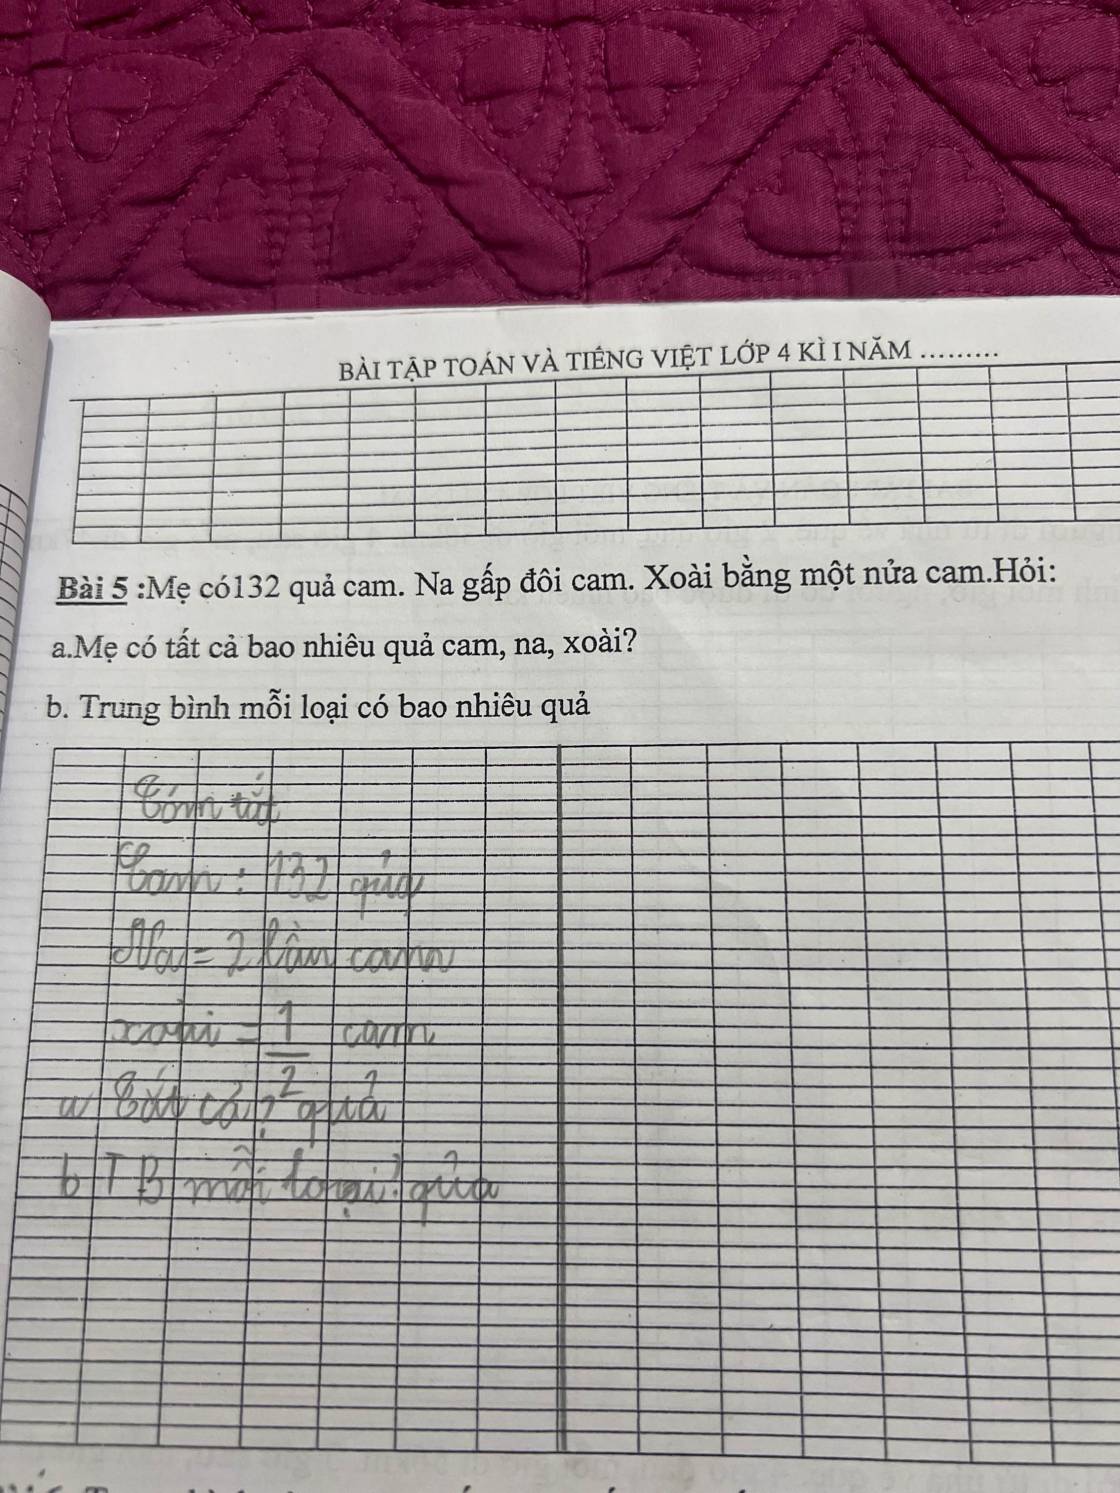 BÀI TẬP TOÁN VÀ TIẾNG VIỆT LỚP 4 KÌ I NĂM .........
Bài 5 :Mẹ có132 quả cam. Na gấp đôi cam. Xoài bằng một nửa cam.Hỏi:
a.Mẹ có tất cả bao nhiêu quả cam, na, xoài?
b. Trung bình mỗi loại có bao nhiêu quả
Tóm tắt
Cam : 132 qủa
Na = 2 lần cam
xoài = 1/2 cam
a/ Tất cả ? quả
b/ TB mỗi loại ? qủa